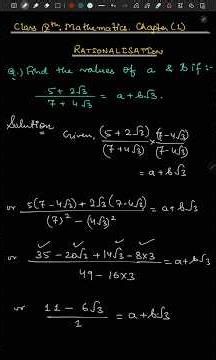 Class 9th, Mathematics, Chapter (1)
RATIONALISATION
Q.) Find the values of a & b if :-
(5 + 2√3)/(7 + 4√3) = a + b√3.
Solution
Given, (5 + 2√3)/(7 + 4√3) × (7 - 4√3)/(7 - 4√3)
= a + b√3
or (5(7 - 4√3) + 2√3(7 - 4√3))/((7)² - (4√3)²) = a + b√3
or (35 - 20√3 + 14√3 - 8×3)/(49 - 16×3) = a + b√3
or (11 - 6√3)/1 = a + b√3